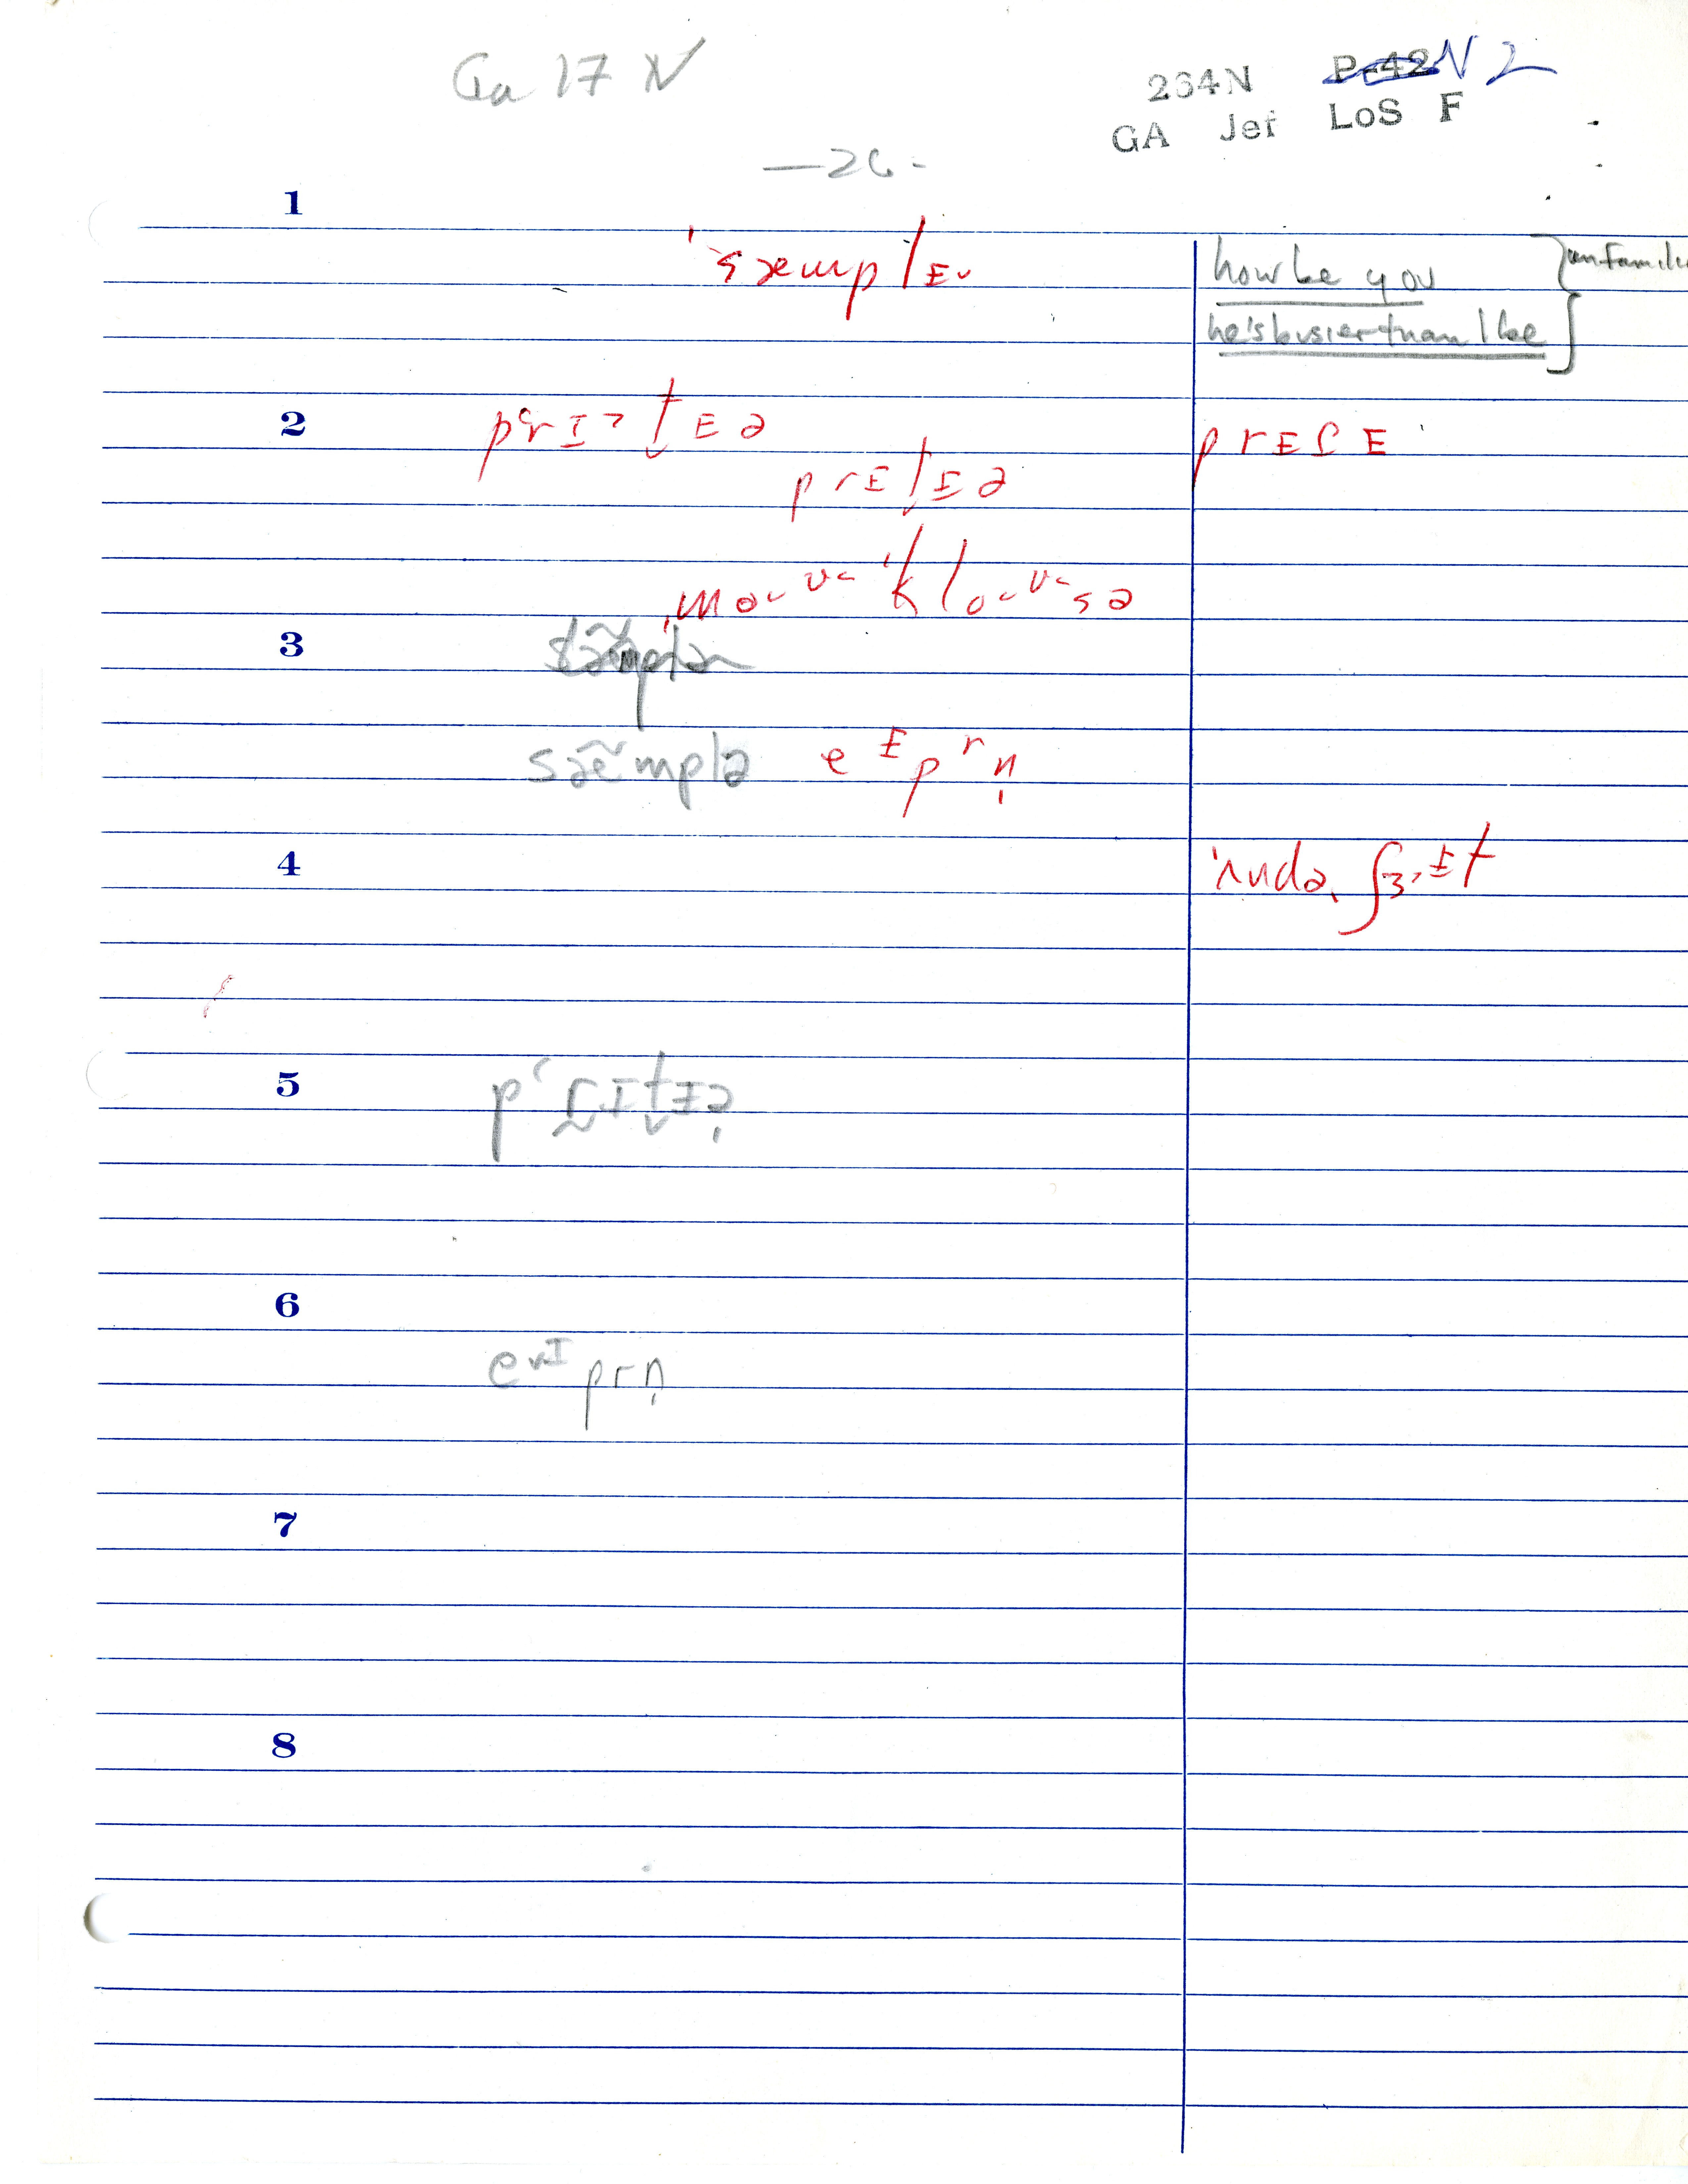 Ga 17 N
264N P-42 N2
GA Jef LoS F
-26-
1
ˈsæmplɪ˅
how be you
he's busier than I be
} unfamilia
2
pʻrɪˀt̬ɪə
prɪt̬ɪə
prɪſɪ
ˌmo˂ʊ˂ ˈklo˂ʊ˂sə
3
sæ̃mplə eᶦpʳn̩
4
ˈʌndəˌʃɜ˞ᶦt
5
pʻr̰ɪt̬ɪə̩
6
e˅ᶦprn̩
7
8